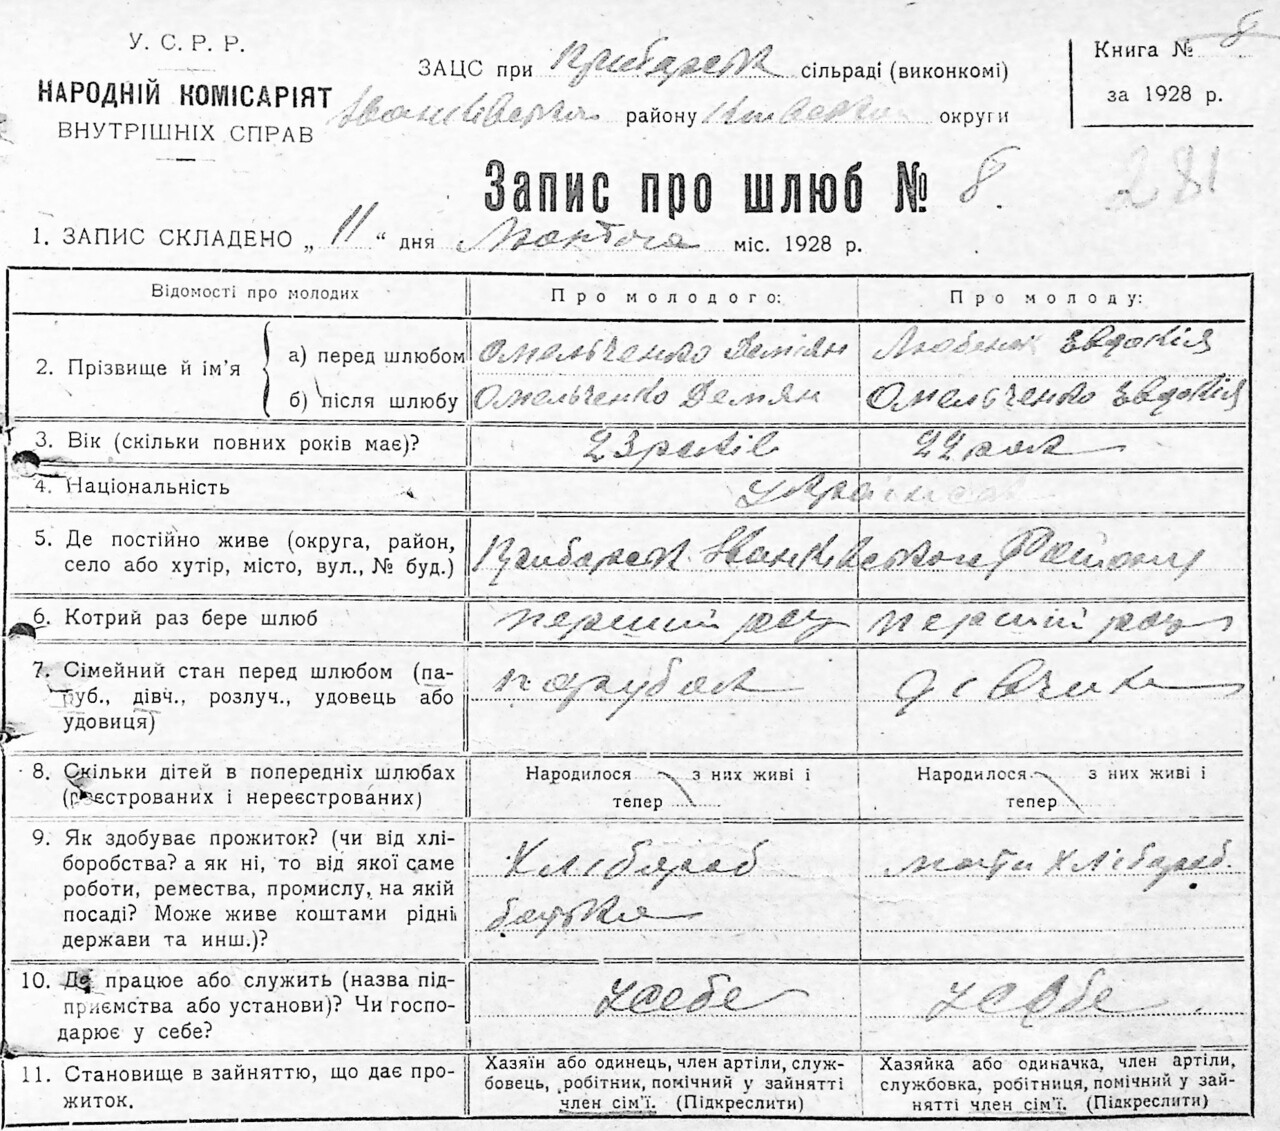 У. С. Р. Р.
НАРОДНІЙ КОМІСАРІЯТ
ВНУТРІШНІХ СПРАВ
ЗАЦС при сільраді (виконкомі)
району округи
Книга № 8
за 1928 р.
Запис про шлюб № 8.
281
1. ЗАПИС СКЛАДЕНО „ 11 “ дня Лютого міс. 1928 р.
Відомості про молодих
Про молодого:
Про молоду:
2. Прізвище й ім'я
а) перед шлюбом
Омельченко Демян
Евдокія
б) після шлюбу
Омельченко Демян
Омельченко Евдокія
3. Вік (скільки повних років має)?
23 років
22 рок
4. Національність
5. Де постійно живе (округа, район,
село або хутір, місто, вул., № буд.)
Району
6. Котрий раз бере шлюб
перший раз
перший раз
7. Сімейний стан перед шлюбом (па-
руб., дівч., розлуч., удовець або
удовиця)
парубок
дівчина
8. Скільки дітей в попередніх шлюбах
(реєстрованих і нереєстрованих)
Народилося з них живі і
тепер
Народилося з них живі і
тепер
9. Як здобуває прожиток? (чи від хлі-
боробства? а як ні, то від якої саме
роботи, ремества, промислу, на якій
посаді? Може живе коштами рідні
держави та инш.)?
Хлібороб
батька
мати хлібороб.
10. Де працює або служить (назва під-
приємства або установи)? Чи госпо-
дарює у себе?
у себе
у себе
11. Становище в зайняттю, що дає про-
житок.
Хазяїн або одинець, член артіли, служ-
бовець, робітник, помічний у зайнятті
член сім'ї. (Підкреслити)
Хазяйка або одиначка, член артіли,
службовка, робітниця, помічний у зай-
нятті член сім'ї. (Підкреслити)